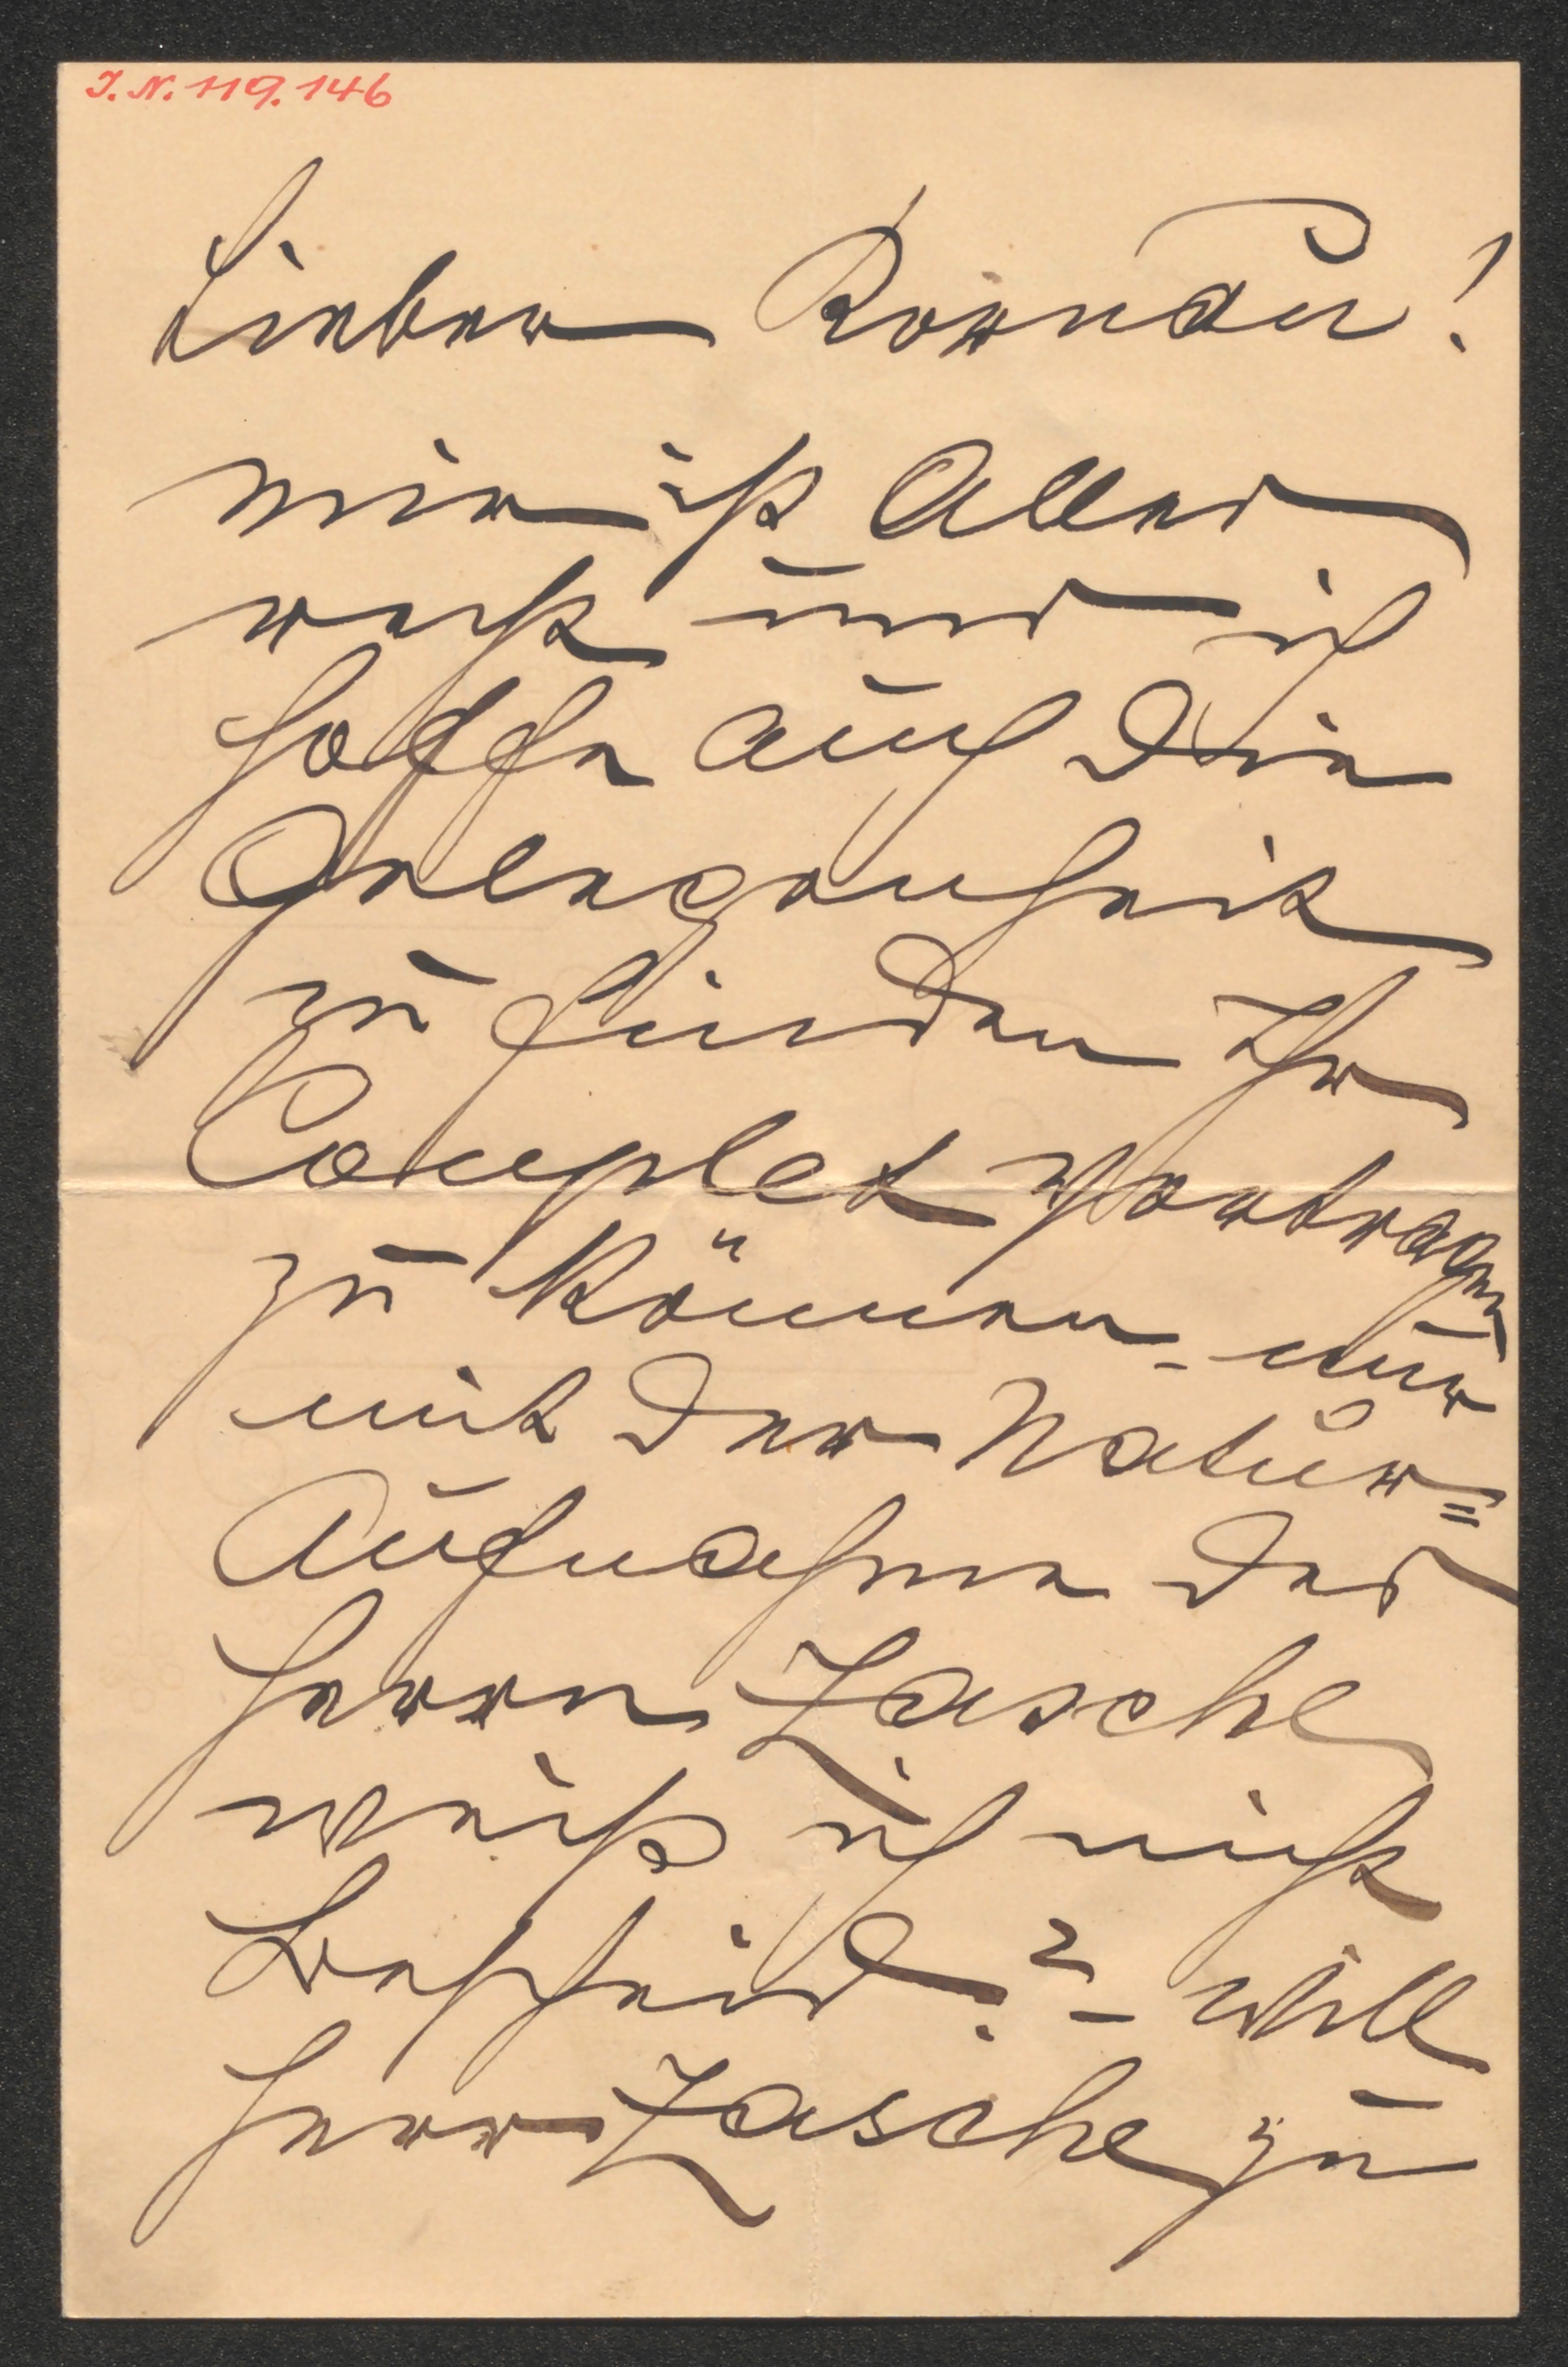 J. N. 119.146
Lieber Kornau!
mir ist Alles
recht und ich
hoffe auch die
Gelegenheit
zu finden Ihr
Couplet vortragen
zu können – nur
mit der Natur=
Aufnahme des
Herrn Zasche
weiß ich nicht
Bescheid? – Will
Herr Zasche zu